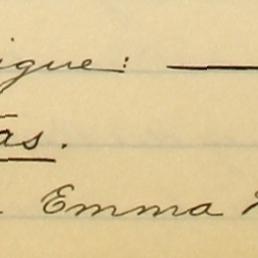 igue: —
as.
Emma